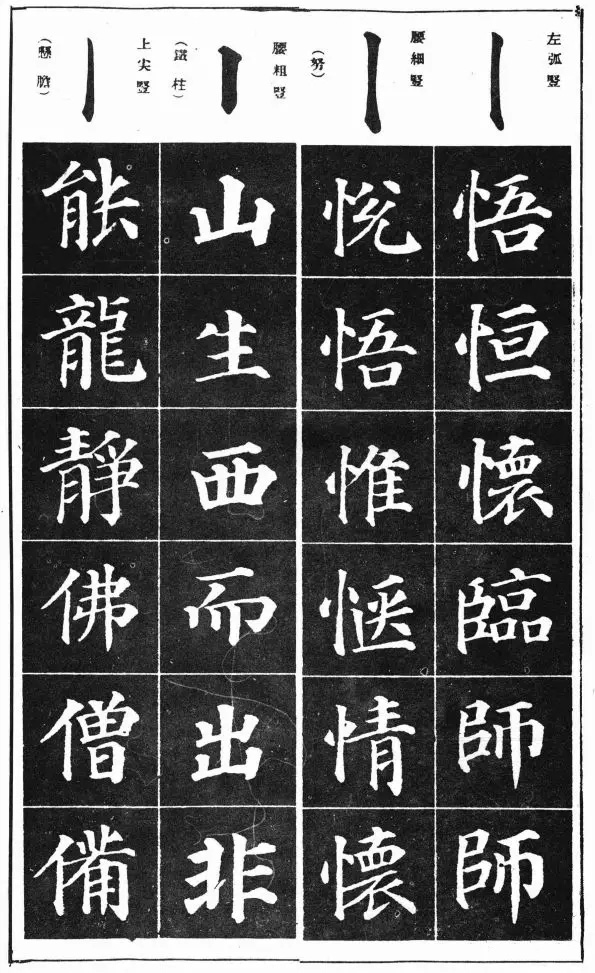 左弧豎
悟恒懷臨師師
腰細豎
（努）
悅悟惟愜情懷
腰粗豎
（鐵柱）
山生西而出非
上尖豎
（懸膽）
能龍靜佛僧備